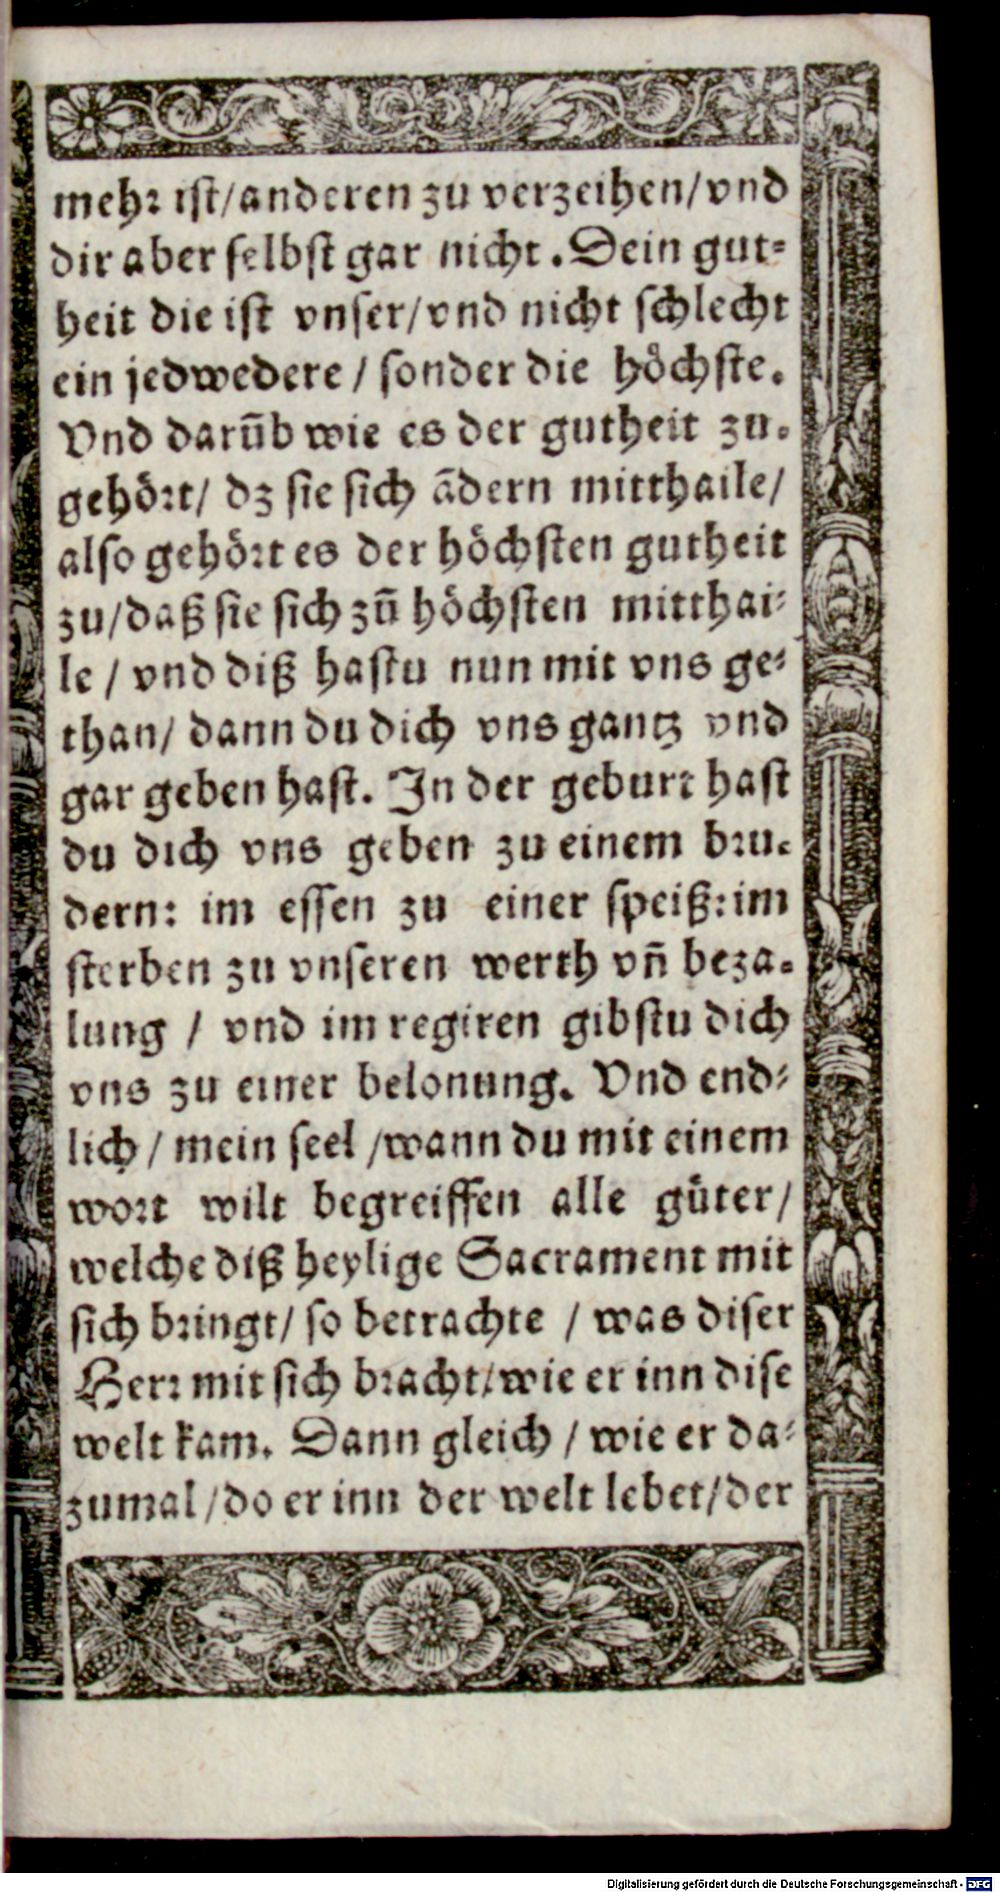 mehr ist/anderen zu verzeihen/vnd
dir aber selbst gar nicht. Dein gut-
heit die ist vnser/vnd nicht schlecht
ein jedwedere / sonder die höchste.
Vnd darūb wie es der gutheit zu-
gehört/ dz sie sich ādern mitthaile/
also gehört es der höchsten gutheit
zu/daß sie sich zū höchsten mitthai-
le / vnd diß hastu nun mit vns ge-
than/ dann du dich vns gantz vnd
gar geben hast. In der geburt hast
du dich vns geben zu einem bru-
dern: im essen zu einer speiß: im
sterben zu vnseren werth vn̄ beza-
lung / vnd im regiren gibstu dich
vns zu einer belonung. Vnd end-
lich / mein seel /wann du mit einem
wort wilt begreiffen alle güter/
welche diß heylige Sacrament mit
sich bringt/ so betrachte / was diser
Herr mit sich bracht/wie er inn dise
welt kam. Dann gleich / wie er da-
zumal /do er inn der welt lebet/der
Digitalisierung gefördert durch die Deutsche Forschungsgemeinschaft - DFG